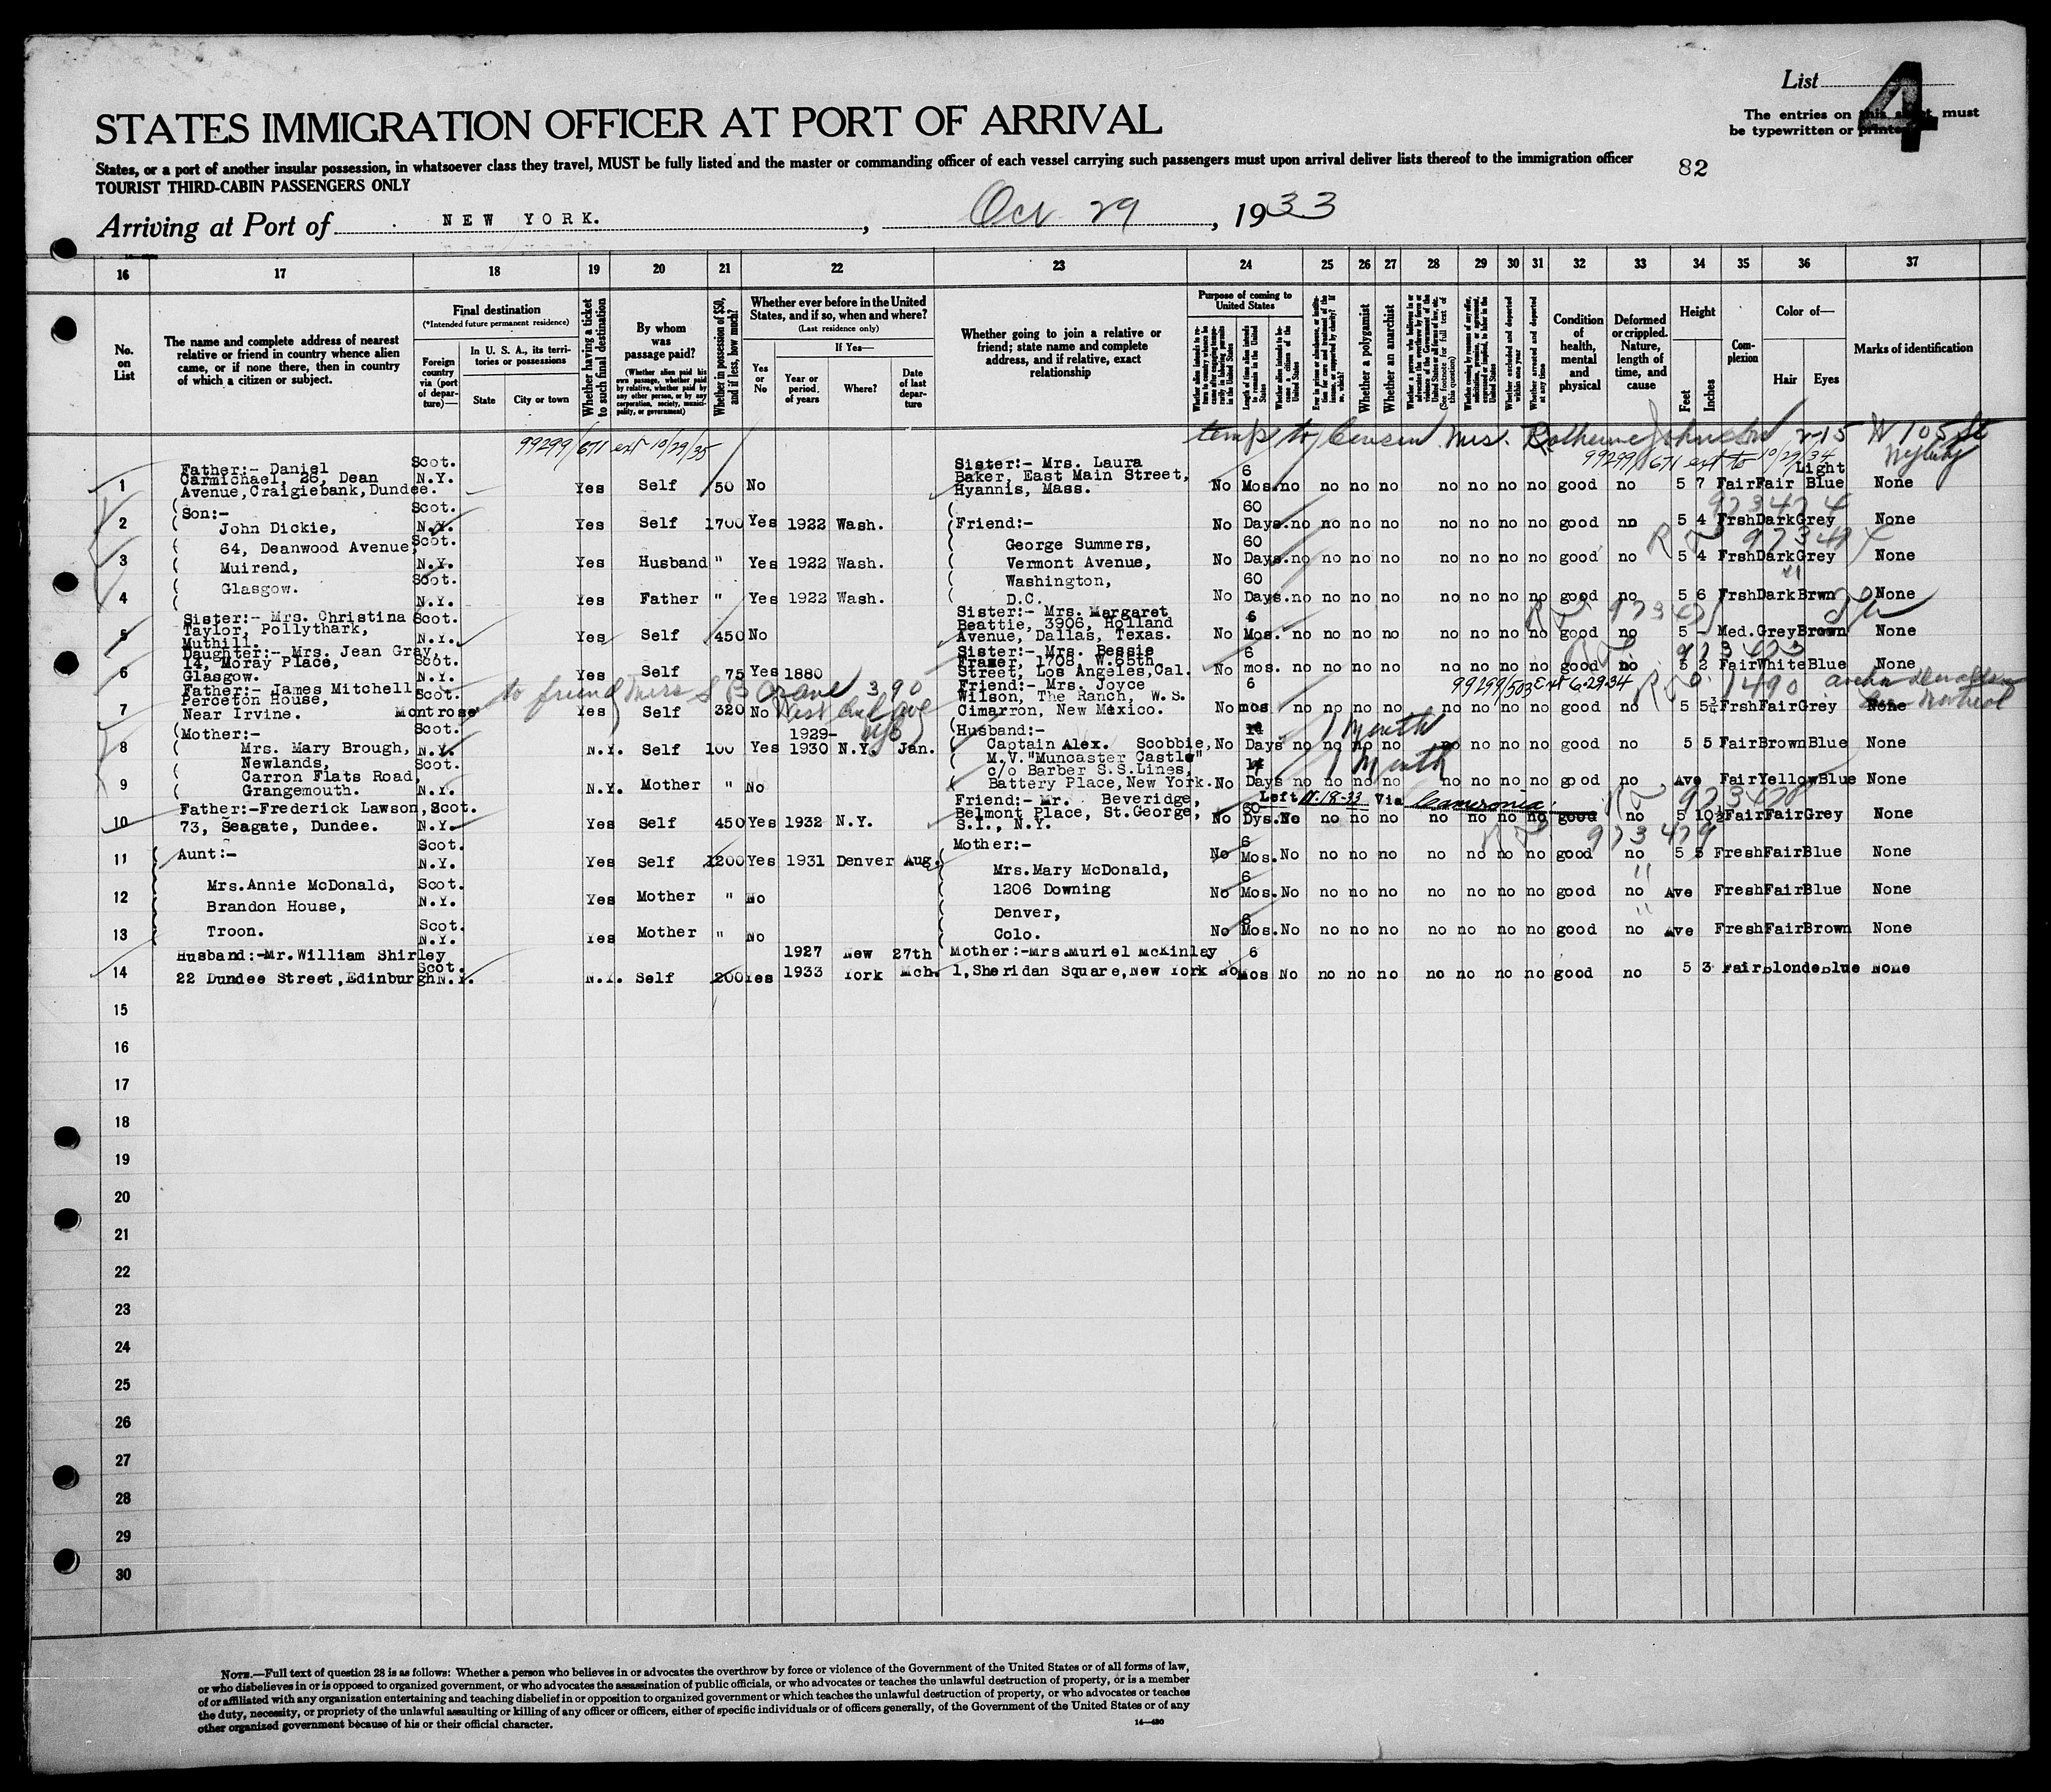 List 4
The entries on this sheet must
be typewritten or printed
STATES IMMIGRATION OFFICER AT PORT OF ARRIVAL
States, or a port of another insular possession, in whatsoever class they travel, MUST be fully listed and the master or commanding officer of each vessel carrying such passengers must upon arrival deliver lists thereof to the immigration officer
82
TOURIST THIRD-CABIN PASSENGERS ONLY
Arriving at Port of NEW YORK. , Oct 29 , 1933
16 17 18 19 20 21 22 23 24 25 26 27 28 29 30 31 32 33 34 35 36 37
No. on List
The name and complete address of nearest
relative or friend in country whence alien
came, or if none there, then in country
of which a citizen or subject.
Final destination
(*Intended future permanent residence)
Foreign country via (port of departure)—
In U. S. A., its territories or possessions
State City or town
Whether having a ticket to such final destination
By whom was passage paid?
(Whether alien paid his own passage, whether paid by relative, whether paid by any other person, or by any corporation, society, municipality, or government)
Whether in possession of $50, and if less, how much?
Whether ever before in the United States, and if so, when and where?
(Last residence only)
If Yes—
Yes or No
Year or period of years
Where?
Date of last departure
Whether going to join a relative or
friend; state name and complete
address, and if relative, exact
relationship
Purpose of coming to United States
Length of time alien intends to remain in the United States
Whether alien intends to become a citizen of the United States
Whether a polygamist
Whether an anarchist
(See footnote for full text of this question)
Whether excluded and deported within one year
Whether arrested and deported at any time
Condition of health, mental and physical
Deformed or crippled. Nature, length of time, and cause
Height
Feet Inches
Complexion
Color of—
Hair Eyes
Marks of identification
99299/671 ext 10/29/35
temp to Cousin Mrs. Johnston 215 W 105 St
99299/671 ext to 10/29/34
1 Father:- Daniel Carmichael, 26, Dean Avenue, Craigiebank, Dundee. Scot. N.Y. Yes Self 50 No Sister:- Mrs. Laura Baker, East Main Street, Hyannis, Mass. No 6 Mos. no no no no no no no no good no 5 7 Fair Fair Light Blue None
973474
2 (Son:- John Dickie, Scot. N.Y. Yes Self 1700 Yes 1922 Wash. (Friend:- No 60 Days. no no no no no no no no good no 5 4 Frsh Dark Grey None
3 64, Deanwood Avenue, Muirend, Scot. N.Y. Yes Husband " Yes 1922 Wash. George Summers, Vermont Avenue, No 60 Days. no no no no no no no no good no 5 4 Frsh Dark Grey None
4 Glasgow. Scot. N.Y. Yes Father " Yes 1922 Wash. Washington, D.C. No 60 Days. no no no no no no no no good no 5 6 Frsh Dark Brwn None
5 Sister:- Mrs. Christina Taylor, Pollythark, Muthill. Scot. N.Y. Yes Self 450 No Sister:- Mrs. Margaret Beattie, 3906, Holland Avenue, Dallas, Texas. No 6 Mos. no no no no no no no no good no 5 - Med. Grey Brown None
973473
6 Daughter:- Mrs. Jean Gray, 14, Moray Place, Glasgow. Scot. N.Y. Yes Self 75 Yes 1880 Sister:- Mrs. Bessie Frazer, 1708 W.65th Street, Los Angeles, Cal. No 6 mos. no no no no no no no no good no 5 2 Fair White Blue None
to friend Miss S B Crane 390 West End Ave NYC
99299/503 ext 6-29-34
7 Father:- James Mitchell Perceton House, Near Irvine. Scot. Montrose Yes Self 320 No Friend:- Mrs. Joyce Wilson, The Ranch, W. S. Cimarron, New Mexico. No 6 mos. no no no no no no no no good no 5 5¾ Frsh Fair Grey None
8 (Mother:- Mrs. Mary Brough, Scot. N.Y. N.Y. Self 100 Yes 1929-1930 N.Y. Jan. (Husband:- Captain Alex. Scobbie, No 14 Days 1 Month no no no no no no no no good no 5 5 Fair Brown Blue None
9 Newlands, Carron Flats Road, Grangemouth. Scot. N.Y. N.Y. Mother " No M.V."Muncaster Castle" c/o Barber S.S.Lines, Battery Place, New York. No 14 Days 1 Month no no no no no no no no good no Ave Fair Yellow Blue None
Left 11-18-33 Via Cameronia.
10 Father:-Frederick Lawson, 73, Seagate, Dundee. Scot. N.Y. Yes Self 450 Yes 1932 N.Y. Friend:- Mr. Beveridge, Belmont Place, St.George, S.I., N.Y. No 60 Dys. No no no no no no no no good no 5 10½ Fair Fair Grey None
973479
11 (Aunt:- Scot. N.Y. Yes Self 1200 Yes 1931 Denver Aug. (Mother:- No 6 Mos. No no no no no no no no good no 5 5 Fresh Fair Blue None
12 Mrs.Annie McDonald, Brandon House, Scot. N.Y. Yes Mother " No Mrs.Mary McDonald, 1206 Downing No 6 Mos. No no no no no no no no good no Ave Fresh Fair Blue None
13 Troon. Scot. N.Y. Yes Mother " No Denver, Colo. No 6 Mos. No no no no no no no no good no Ave Fresh Fair Brown None
14 Husband:-Mr.William Shirley 22 Dundee Street, Edinburgh Scot. N.Y. N.Y. Self 200 Yes 1927 1933 New York 27th Mch. Mother:-Mrs.Muriel McKinlay 1, Sheridan Square, New York No 6 Mos No no no no no no no no good no 5 3 Fair blonde Blue None
15
16
17
18
19
20
21
22
23
24
25
26
27
28
29
30
NOTE.—Full text of question 28 is as follows: Whether a person who believes in or advocates the overthrow by force or violence of the Government of the United States or of all forms of law,
or who disbelieves in or is opposed to organized government, or who advocates the assassination of public officials, or who advocates or teaches the unlawful destruction of property, or is a member
of or affiliated with any organization entertaining and teaching disbelief in or opposition to organized government or which teaches the unlawful destruction of property, or who advocates or teaches
the duty, necessity, or propriety of the unlawful assaulting or killing of any officer or officers, either of specific individuals or of officers generally, of the Government of the United States or of any
other organized government because of his or their official character.
14—430